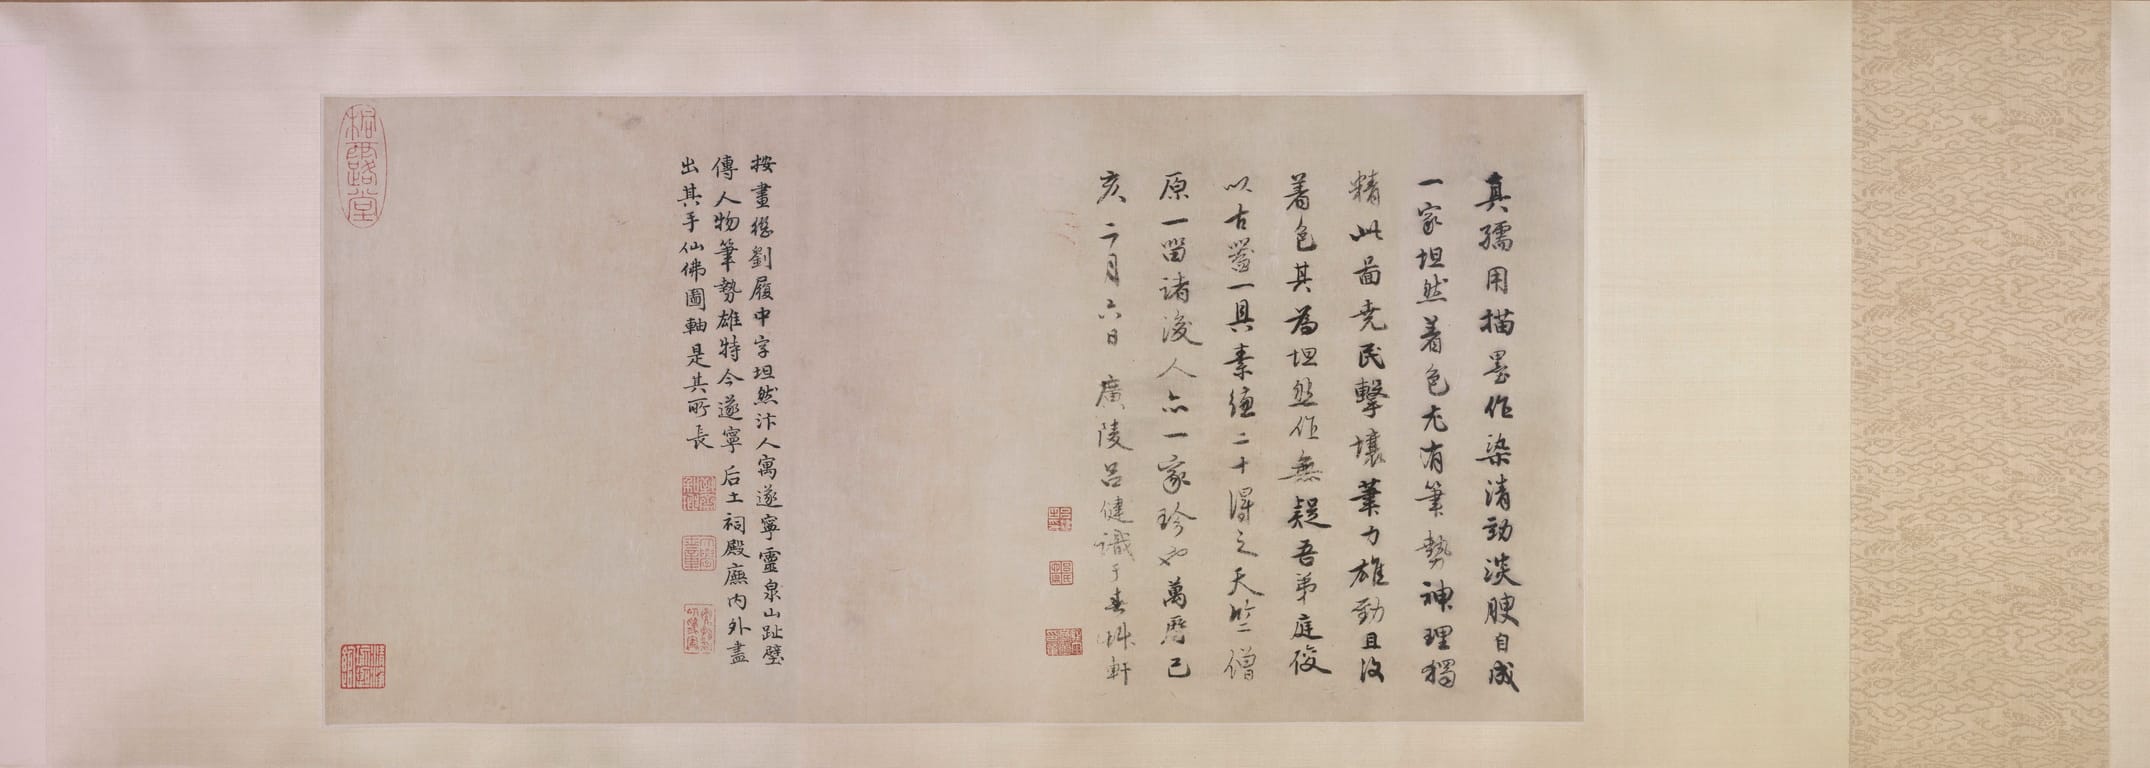 真孺用描墨作染清勁淡腴自成
一家坦然着色尤有筆勢神理獨
精此圖堯民擊壤筆力雄勁且沒
着色其為坦然作無疑吾弟庭俊
以古罍一具素縑二十得之天竺僧
原一留諸後人亦一家珍也萬曆己
亥二月六日 廣陵呂健識于春艸軒
按畫繼劉履中字坦然汴人寓遂寧靈泉山趾壁
傳人物筆勢雄特今遂寧后土祠殿廡內外盡
出其手仙佛圖軸是其所長